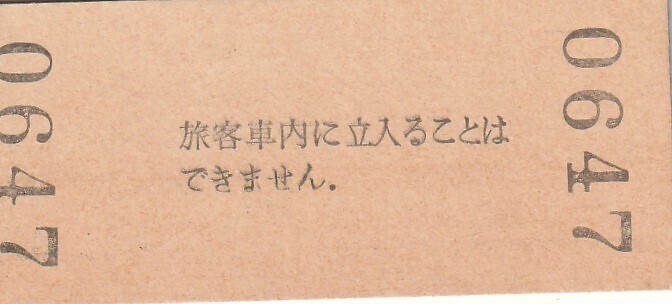 0647
旅客車内に立入ることは
できません.
0647